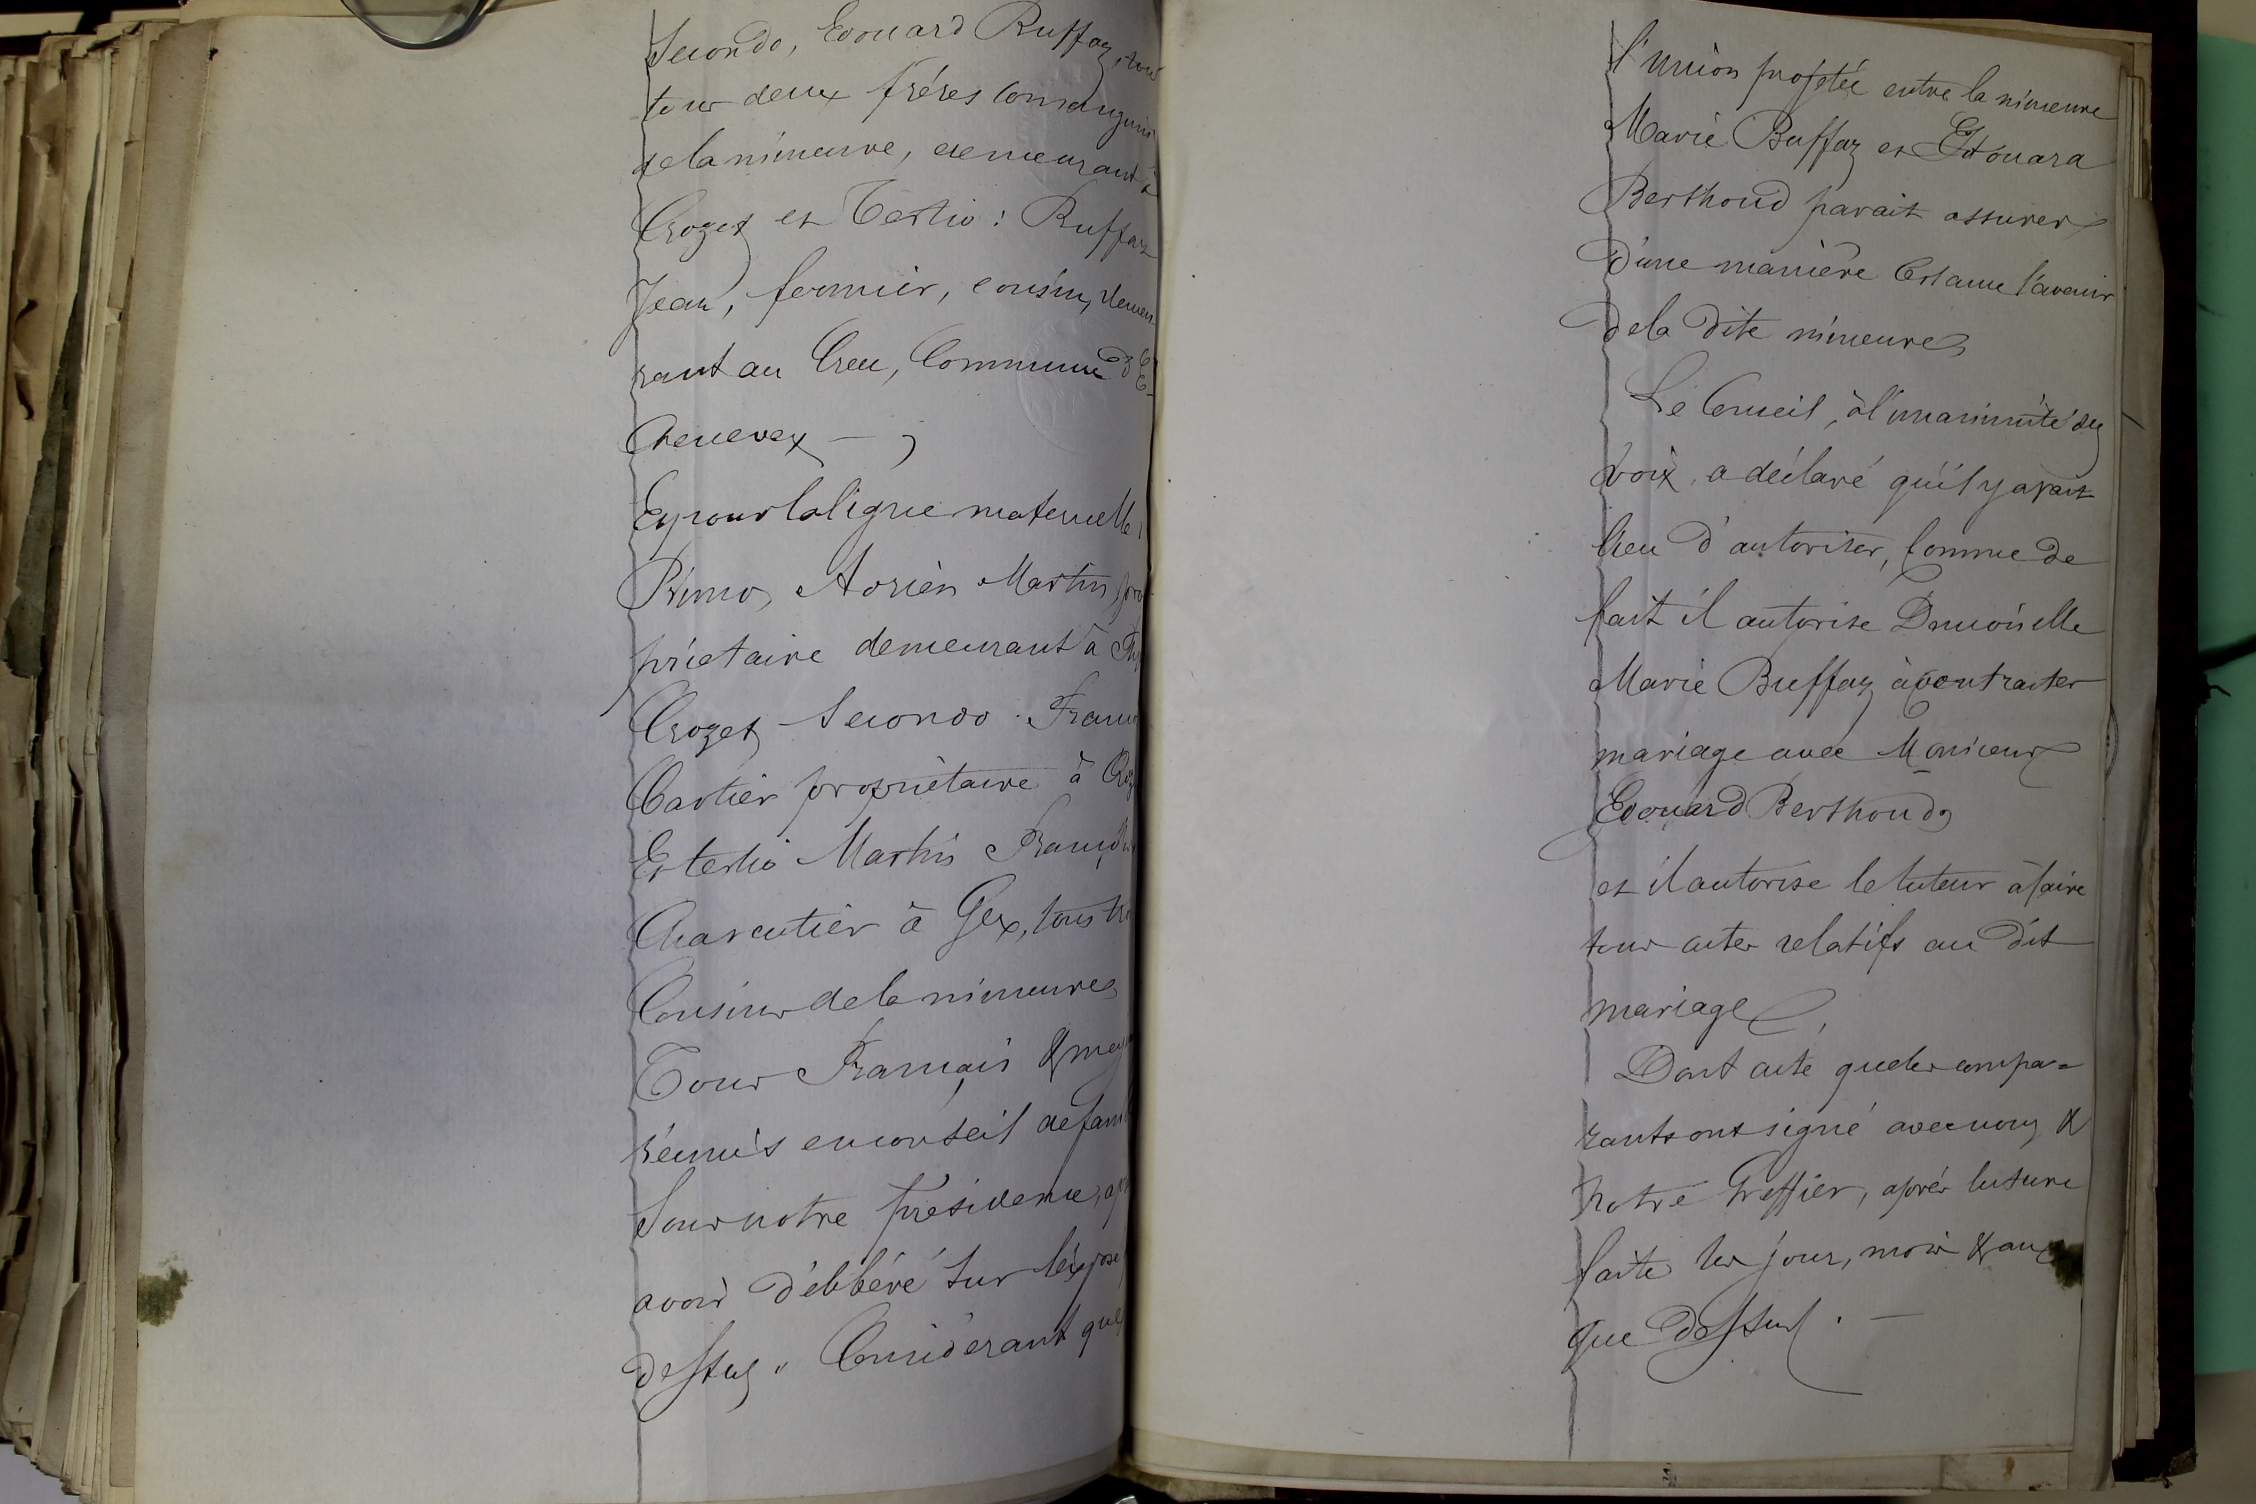 Secondo, Edouard Buffaz, tous
tous deux frères consanguins
de la mineure, demeurant à
Crozet et Tertio : Buffaz
Jean, fermier, cousin, demeu-
rant au Creu, Commune d'E-
chenevex — ,
Et pour la ligne maternelle,
Primo, Adrien Martin, pro-
priétaire demeurant à
Crozet Secondo . Franç
Cartier propriétaire à Croz
Et tertio Martin François
Charcutier à Gex, tous tr
Cousins de la mineure,
Tous Français & maj
réunis en conseil de fami
Sous notre présidence, ap
avoir délibéré sur l'exposé
dessus " Considérant que
l'union projetée entre la mineure
Marie Buffaz et Edouard
Berthoud parait assurer
d'une manière certaine l'avenir
de la dite mineure,
Le Conseil, à l'unanimité des
voix, a déclaré qu'il y avait
lieu d'autoriser, comme de
fait il autorise Demoiselle
Marie Buffaz à contracter
mariage avec Monsieur
Edouard Berthoud,
et il autorise le tuteur à faire
tous actes relatifs au dit
mariage ,
Dont acte que les compa=
rants ont signé avec nous &
notre Greffier, après lecture
faite les jour, mois & an
que dessus . —